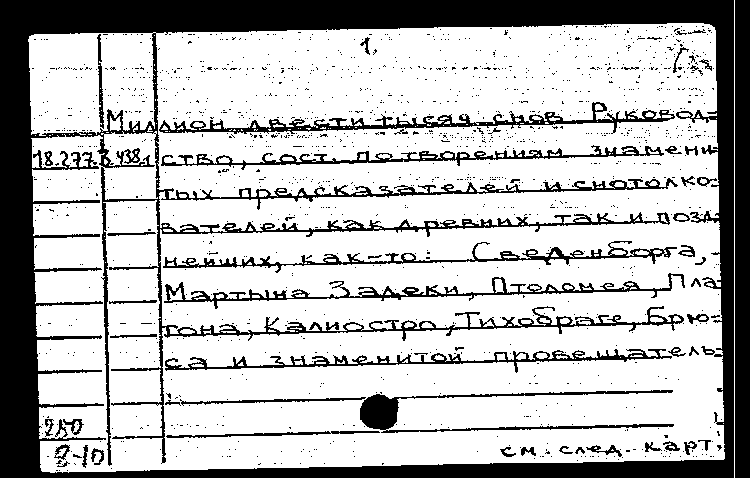 1.
Миллион двести тысяч снов Руковод=
18.277.3.438.1 ство, сост. по творениям знамени
тых предсказателей и снотолко=
вателей, как древних, так и позд=
нейших, как-то: Сведенборга,
Мартына Задеки, Птоломея, Пла=
тона, Калиостро, Тихобраге, Брю=
са и знаменитой провещатель=
250
8-10
см. след. карт.